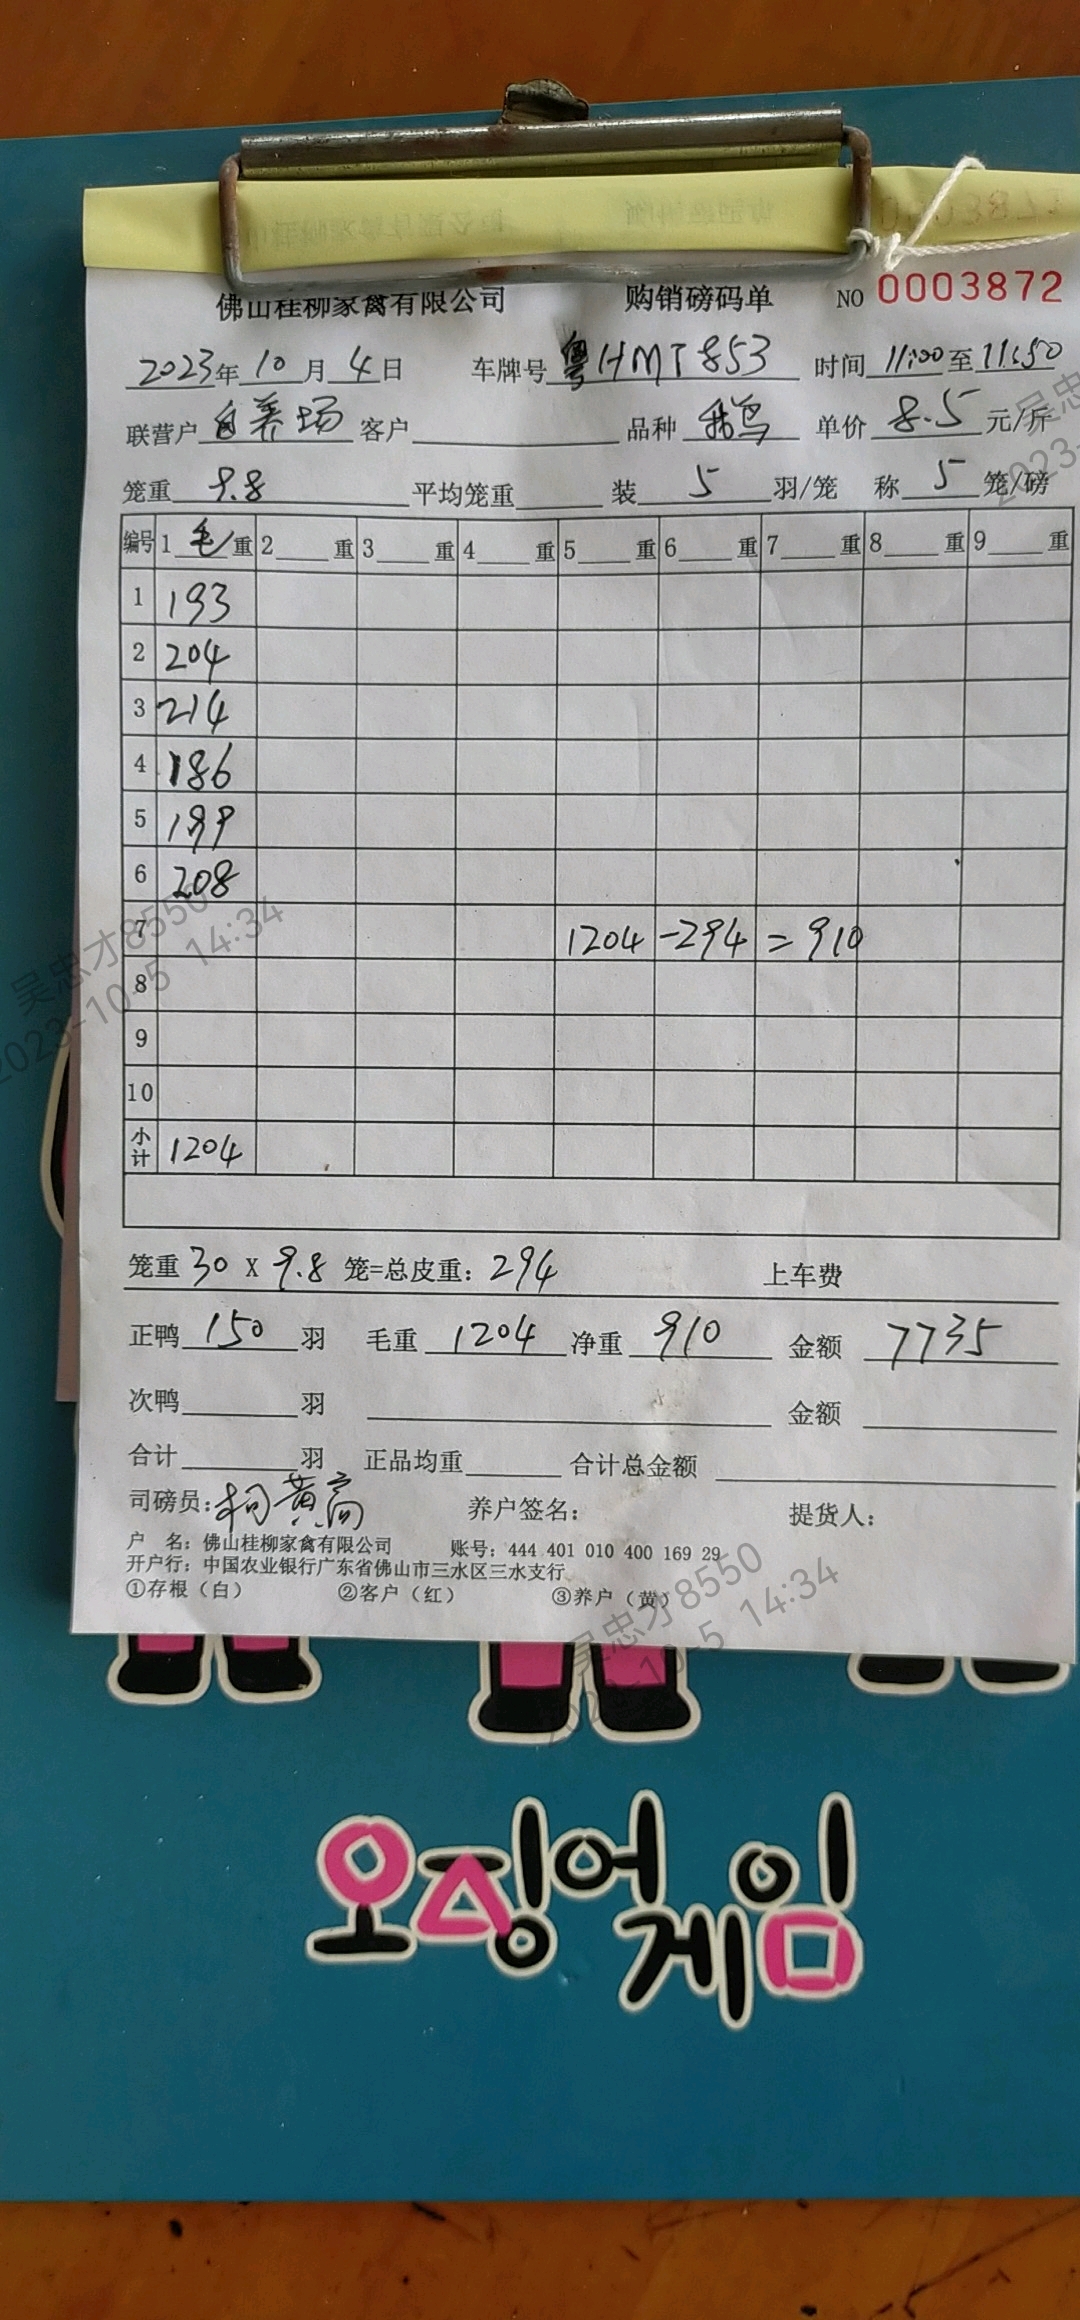 佛山桂柳家禽有限公司 购销磅码单 NO 0003872
2023年10月4日 车牌号 粤HMT853 时间 11:00至11:50
联营户 自养场 客户 品种 鹅 单价 8.5 元/斤
笼重 9.8 平均笼重 装 5 羽/笼 称 5 笼/磅
编号 1 毛 重 2 重 3 重 4 重 5 重 6 重 7 重 8 重 9 重
1 193
2 204
3 214
4 186
5 199
6 208
7 1204-294=910
8
9
10
小计 1204
笼重 30 X 9.8 笼=总皮重: 294 上车费
正鸭 150 羽 毛重 1204 净重 910 金额 7735
次鸭 羽 金额
合计 羽 正品均重 合计总金额
司磅员: 养户签名: 提货人:
户 名: 佛山桂柳家禽有限公司 账号: 444 401 010 400 169 29
开户行: 中国农业银行广东省佛山市三水区三水支行
①存根（白） ②客户（红） ③养户（黄）
吴忠才8550
2023-10-5 14:34
吴忠才8550
2023-10-5 14:34
오징어
게임